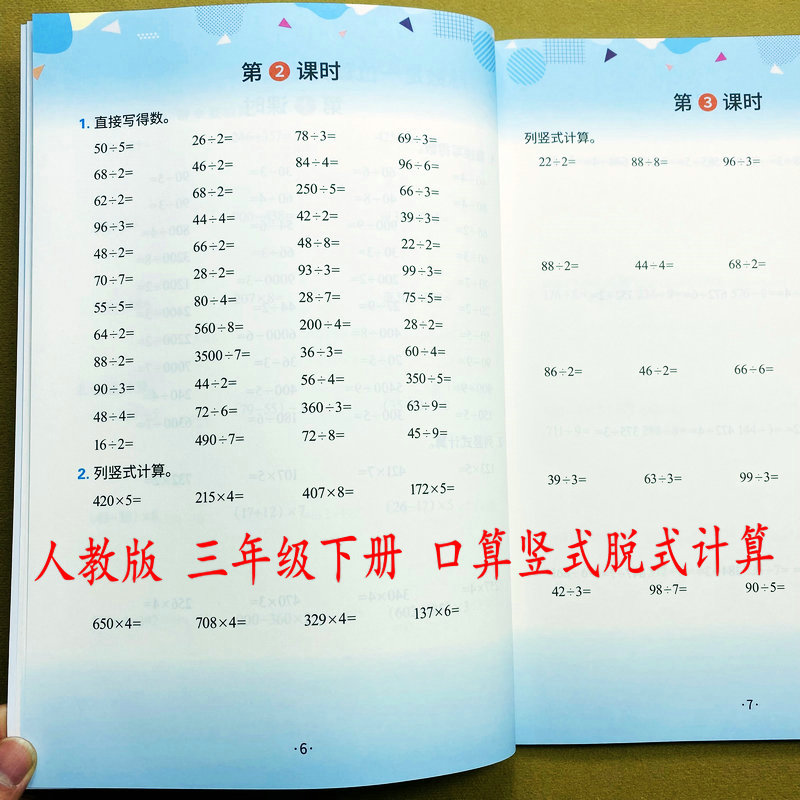 第2课时
1. 直接写得数。
50÷5= 26÷2= 78÷3= 69÷3=
68÷2= 46÷2= 84÷4= 96÷6=
62÷2= 68÷2= 250÷5= 66÷3=
96÷3= 44÷4= 42÷2= 39÷3=
48÷2= 66÷2= 48÷8= 22÷2=
70÷7= 28÷2= 93÷3= 99÷3=
55÷5= 80÷4= 28÷7= 75÷5=
64÷2= 560÷8= 200÷4= 28÷2=
88÷2= 3500÷7= 36÷3= 60÷4=
90÷3= 44÷2= 56÷4= 350÷5=
48÷4= 72÷6= 360÷3= 63÷9=
16÷2= 490÷7= 72÷8= 45÷9=
2. 列竖式计算。
420×5= 215×4= 407×8= 172×5=
650×4= 708×4= 329×4= 137×6=
·6·
第3课时
列竖式计算。
22÷2= 88÷8= 96÷3=
88÷2= 44÷4= 68÷2=
86÷2= 46÷2= 66÷6=
39÷3= 63÷3= 99÷3=
42÷3= 98÷7= 90÷5=
·7·
人教版 三年级下册 口算竖式脱式计算